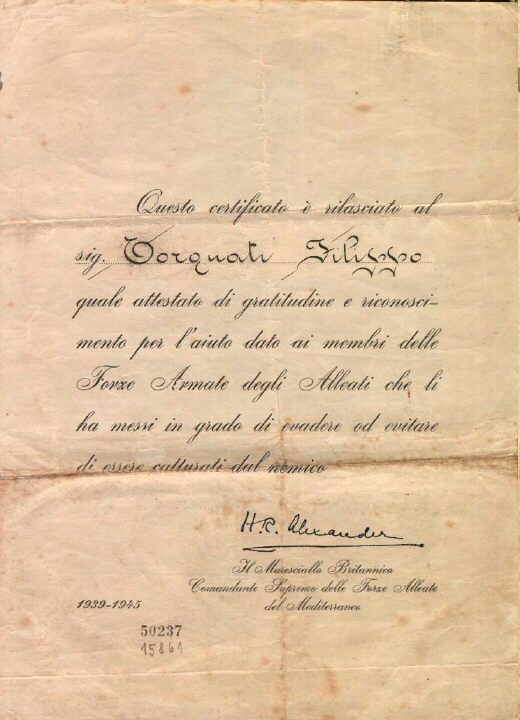 Questo certificato è rilasciato al
sig. Torquati Filippo
quale attestato di gratitudine e riconosci-
mento per l'aiuto dato ai membri delle
Forze Armate degli Alleati che li
ha messi in grado di evadere od evitare
di essere catturati dal nemico
H.R. Alexander
Il Maresciallo Britannico
Comandante Supremo delle Forze Alleate
del Mediterraneo
1939-1945
50237
15861